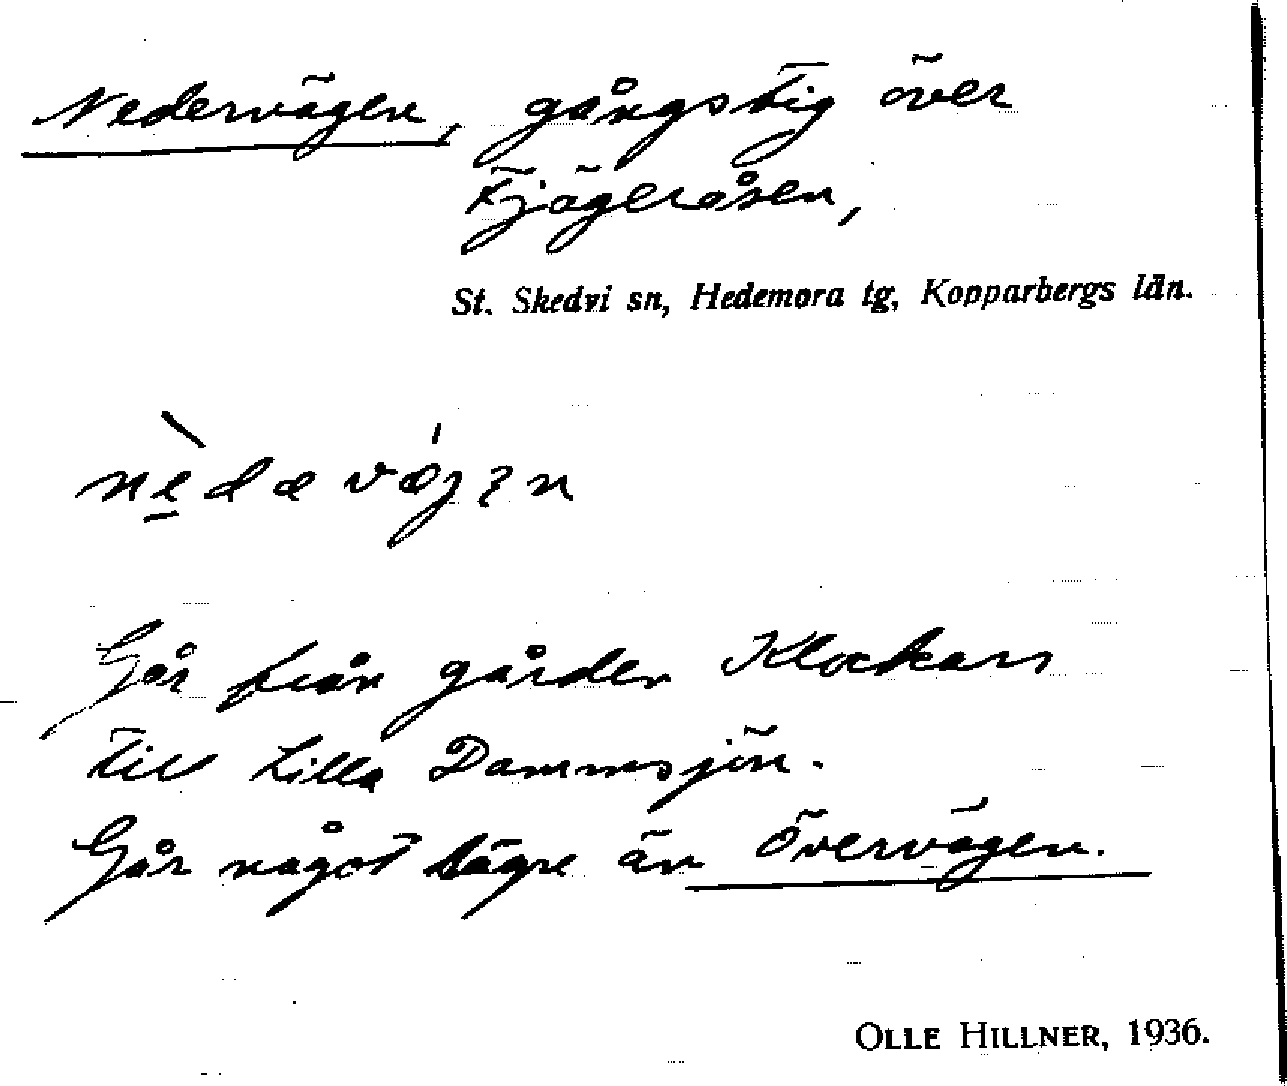 Nedervägen, gångstig över
Fjägeråsen,
St. Skedvi sn, Hedemora tg, Kopparbergs län.
Går från gården Klockars
till Lilla Dammsjön.
Går något lägre än Övervägen.
OLLE HILLNER, 1936.